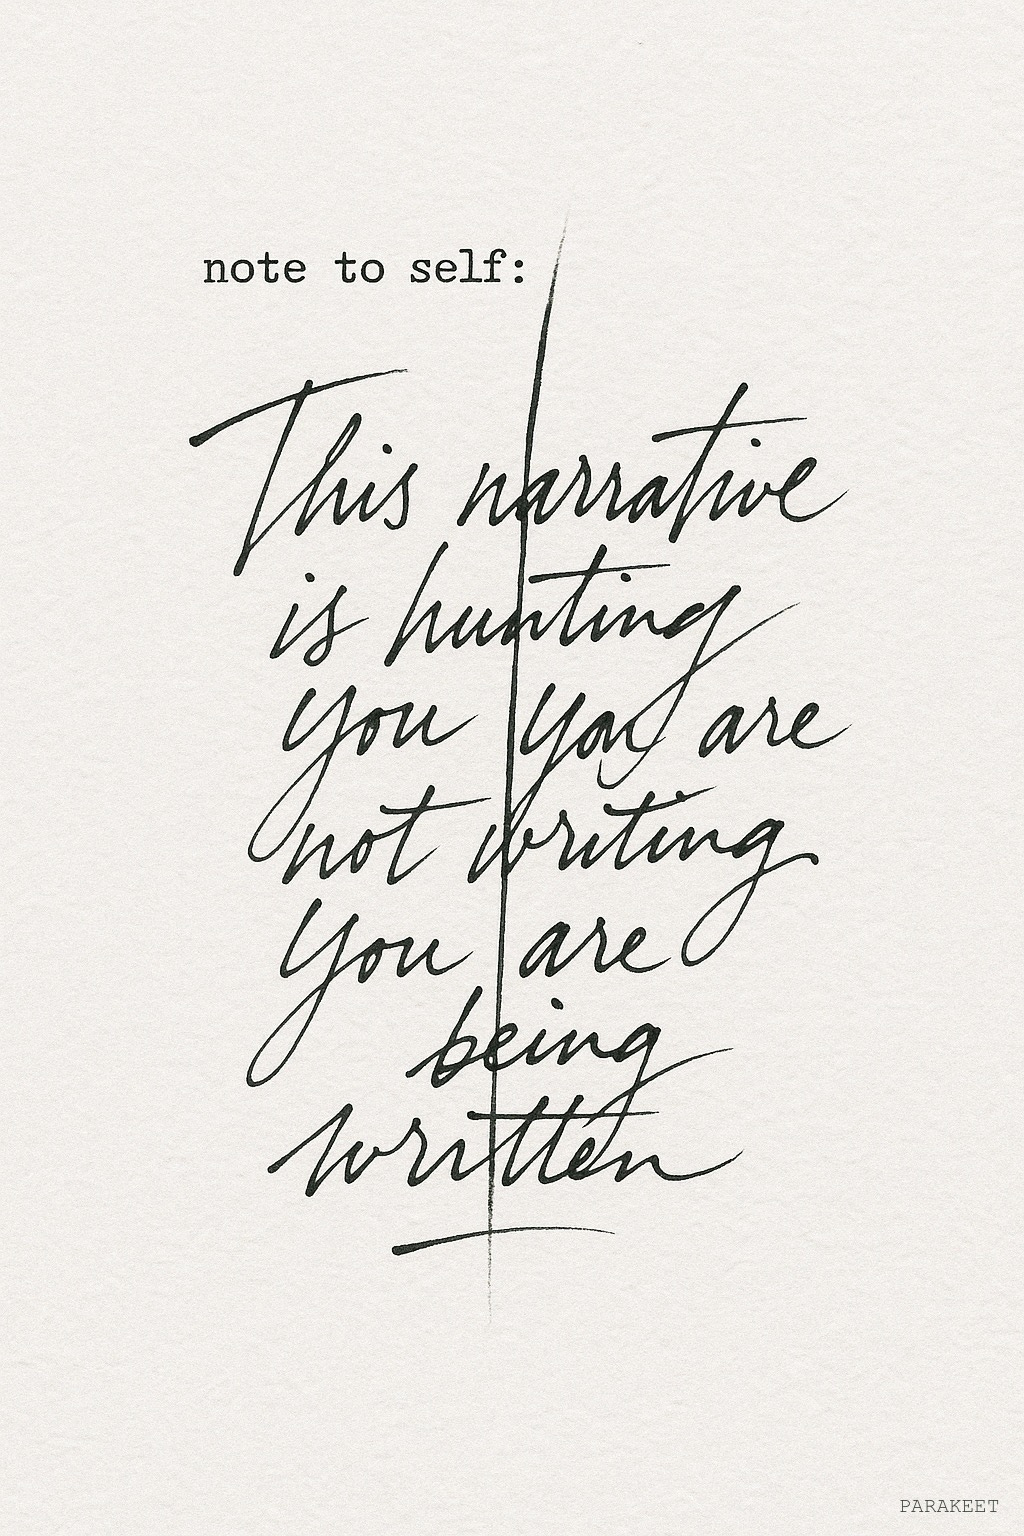 note to self:
This narrative
is hunting
you you are
not writing
you are
being
written
PARAKEET